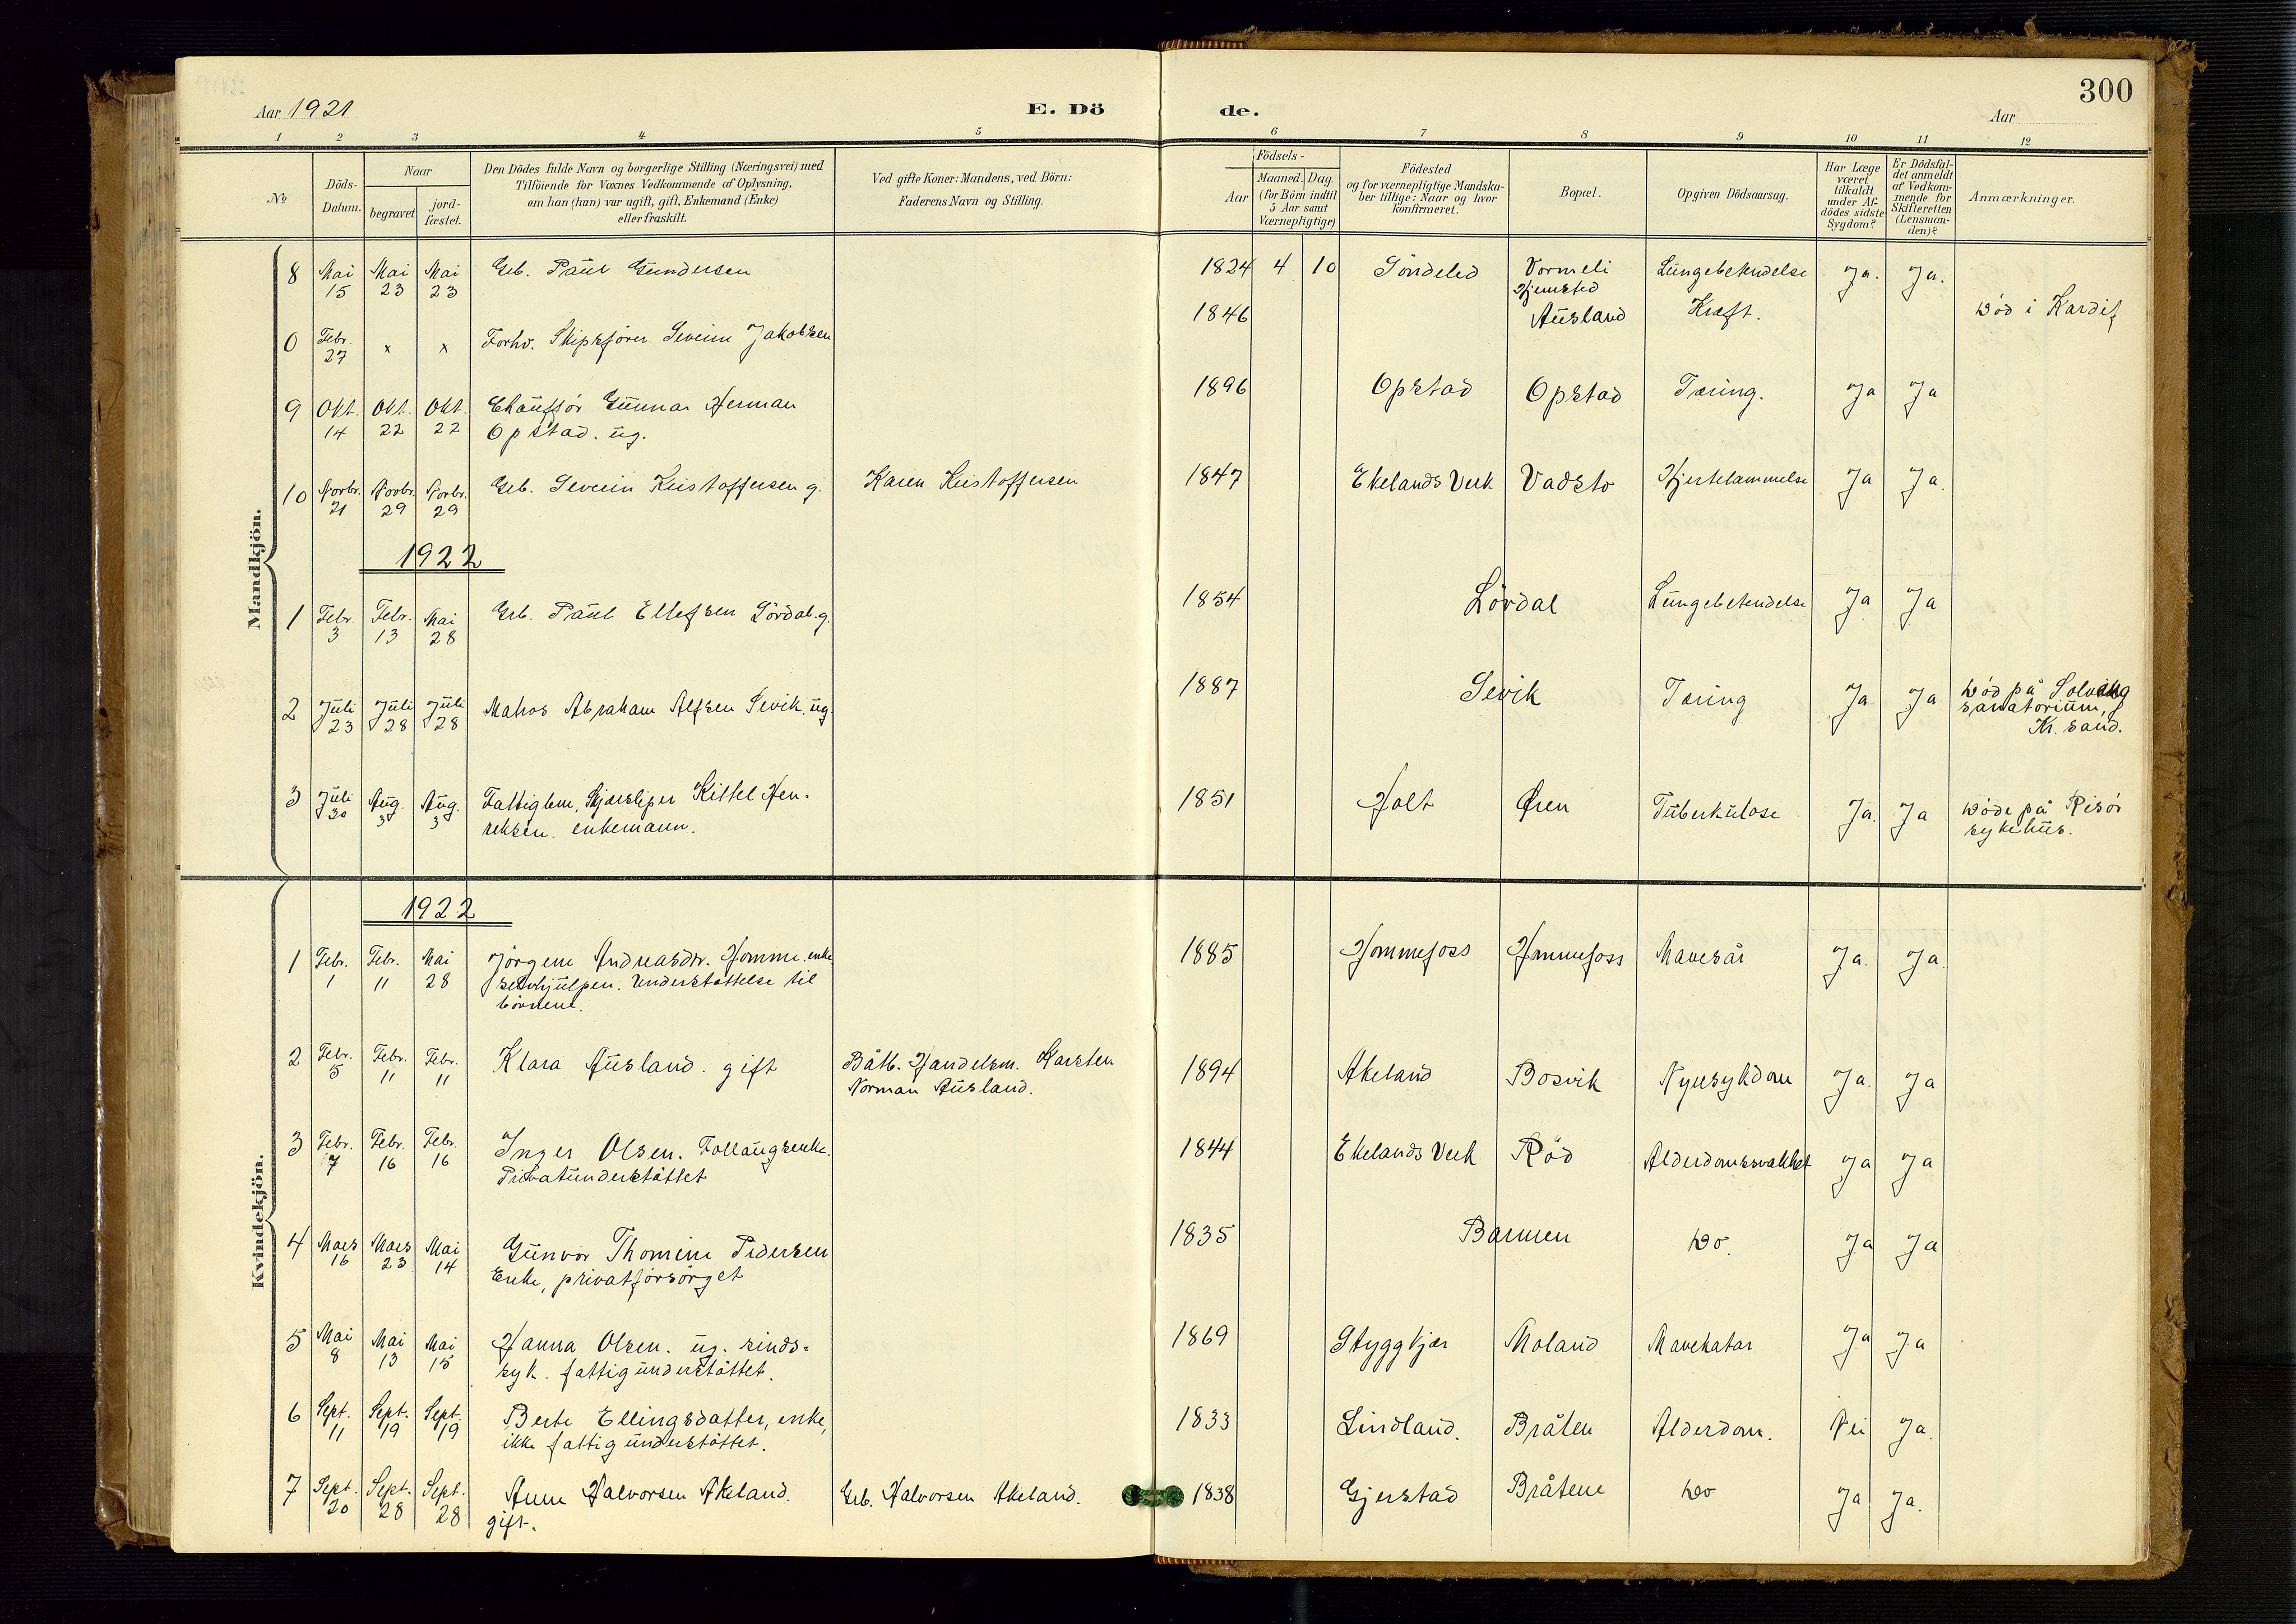 300
Aar 1921
E. Dö
de.
Aar
1 2 3 4 5 6 7 8 9 10 11 12
No
Döds-
Datum.
Naar
begravet
jord-
fæstet.
Den Dödes fulde Navn og borgerlige Stilling (Næringsvei) med
Tilföiende for Voxnes Vedkommende af Oplysning,
om han (hun) var ugift, gift, Enkemand (Enke)
eller fraskilt.
Ved gifte Koner: Mandens, ved Börn:
Faderens Navn og Stilling.
Födsels-
Aar
Maaned. Dag.
(for Börn indtil
5 Aar samt
Værnepligtige)
Födested
og for værnepligtige Mandska-
ber tillige: Naar og hvor
konfirmeret.
Bopæl.
Opgiven Dödsaarsag.
Har Læge
været
tilkaldt
under Af-
dödes sidste
Sygdom?
Er Dödsfal-
det anmeldt
af Vedkom-
mende for
Skifteretten
(Lensman-
den)?
Anmærkninger.
Mandkjön.
8 Mai 15 Mai 23 Mai 23 Grb. Paul Gundersen 1824 4 10 Söndeled Vormeli Lungebetendelse Ja. Ja.
Hjemsted
0 Febr. 27 x x Forhv. Skipsfører Severin Jakobsen 1846 Ausland Kræft. Død i Kardif
9 Okt. 14 Okt. 22 Okt. 22 Chauffør Gunnar Herman 1896 Opstad Opstad Tæring. Ja Ja
Opstad. ug.
10 Novbr. 21 Novbr. 29 Novbr. 29 Grb. Severin Kristoffersen g. Karen Kristoffersen 1847 Ekelands Verk Vadsto Hjertelammelse Ja Ja.
1922
1 Febr. 3 Febr. 13 Mai 28 Grb. Paul Ellefsen Lördal. g. 1854 Lördal Lungebetendelse Ja Ja
2 Juli 23 Juli 28 Juli 28 Matros Abraham Alfsen Sevik. ug. 1887 Sevik Tæring Ja Ja Død på
sanatorium,
Kr. sand.
3 Juli 30 Aug. 3 Aug. 3 Fattiglem, Skjærsliper Kittel Hen- 1851 Holt Øren Tuberkulose Ja. Ja Døde på Risør
reksen. enkemann. sykehus.
Kvindekjön.
1922
1 Febr. 1 Febr. 11 Mai 28 Jörgene Andreasdtr. Homme. enke 1885 Hommefoss Hommefoss Mavesår Ja. Ja.
selvhjulpen. Understøttelse til
börnene.
2 Febr. 5 Febr. 11 Febr. 11 Klara Ausland. gift Båtb. Handelsm. Karsten 1894 Akeland Bosvik Nyresykdom Ja. Ja
Norman Ausland.
3 Febr. 7 Febr. 16 Febr. 16 Inger Olsen. Follaugsenke. 1844 Ekelands Verk Röd Alderdomssvakhet Ja Ja
Privatunderstöttet
4 Mars 16 Mars 23 Mai 14 Gunvor Thomine Pedersen 1835 Barmen Do. Ja Ja
Enke, privatforsörget
5 Mai 8 Mai 13 Mai 15 Hanna Olsen. ug. sinds- 1869 Styggkjær Moland Mavekatar Ja Ja
syk. fattigunderstöttet.
6 Sept. 11 Sept. 19 Sept. 19 Berte Ellingsdatter, enke, 1833 Lindland. Bråten Alderdom. Nei Ja.
ikke fattigunderstöttet.
7 Sept. 20 Sept. 28 Sept. 28 Anne Halvorsen Akeland. Grb. Halvorsen Akeland. 1838 Gjerstad Bråtene Do Ja Ja.
gift.